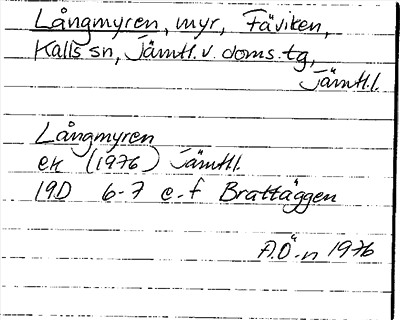 Långmyren, myr, Fäviken,
Kalls sn, Jämtl. v. doms. tg,
Jämtl. l.
Långmyren
ek (1976) Jämtl.
19D 6-7 e-f Brattäggen
A.Ö-n 1976